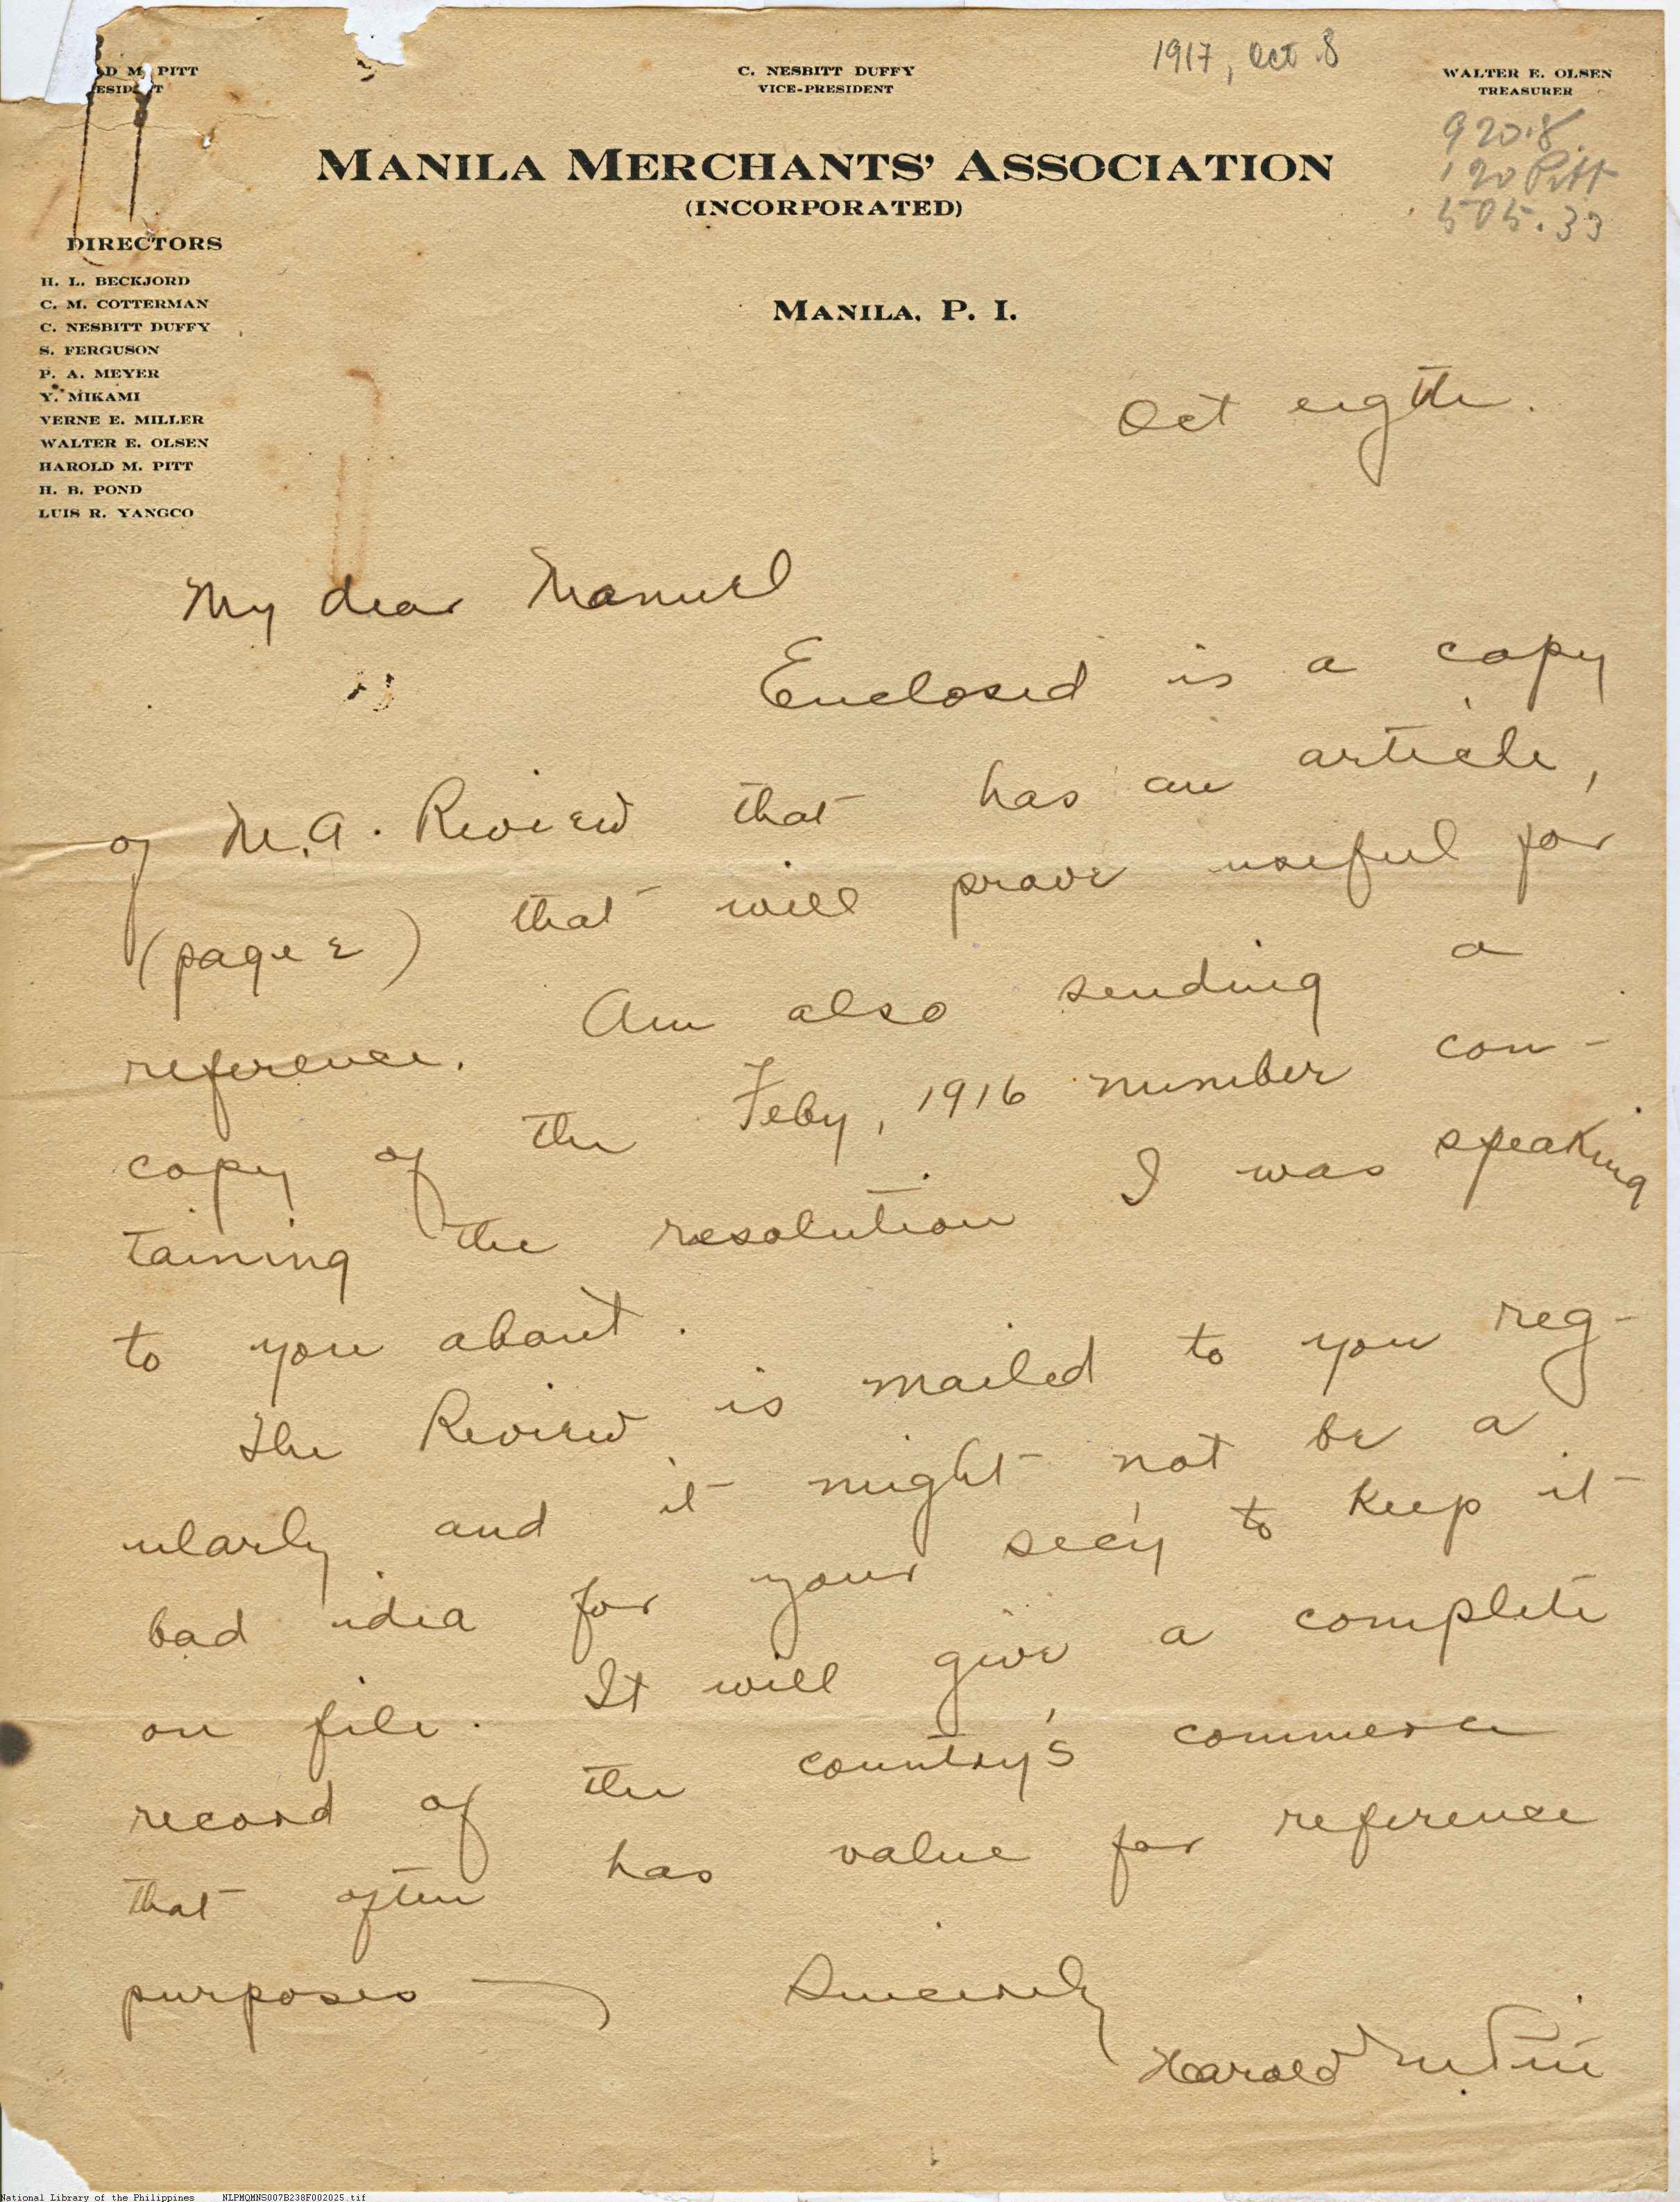 1917, Oct 8
AD M. PITT
ESIDENT
C. NESBITT DUFFY
VICE-PRESIDENT
WALTER E. OLSEN
TREASURER
920.8
Pitt
505.33
MANILA MERCHANTS' ASSOCIATION
(INCORPORATED)
MANILA, P. I.
DIRECTORS
H. L. BECKJORD
C. M. COTTERMAN
C. NESBITT DUFFY
S. FERGUSON
P. A. MEYER
Y. MIKAMI
VERNE E. MILLER
WALTER E. OLSEN
HAROLD M. PITT
H. B. POND
LUIS R. YANGCO
Oct eigth.
My dear Manuel
Enclosed is a copy
of M.A. Review that has an article,
(page 2) that will prove useful for
reference. Am also sending a
copy of the Feby, 1916 number con-
taining the resolution I was speaking
to you about.
The Review is mailed to you reg-
ularly and it might not be a
bad idea for your sec'y to keep it
on file. It will give a complete
record of the country's commerce
that often has value for reference
purposes
Sincerely
Harold M. Pitt
National Library of the Philippines NLPMQMNS007B238F002025.tif